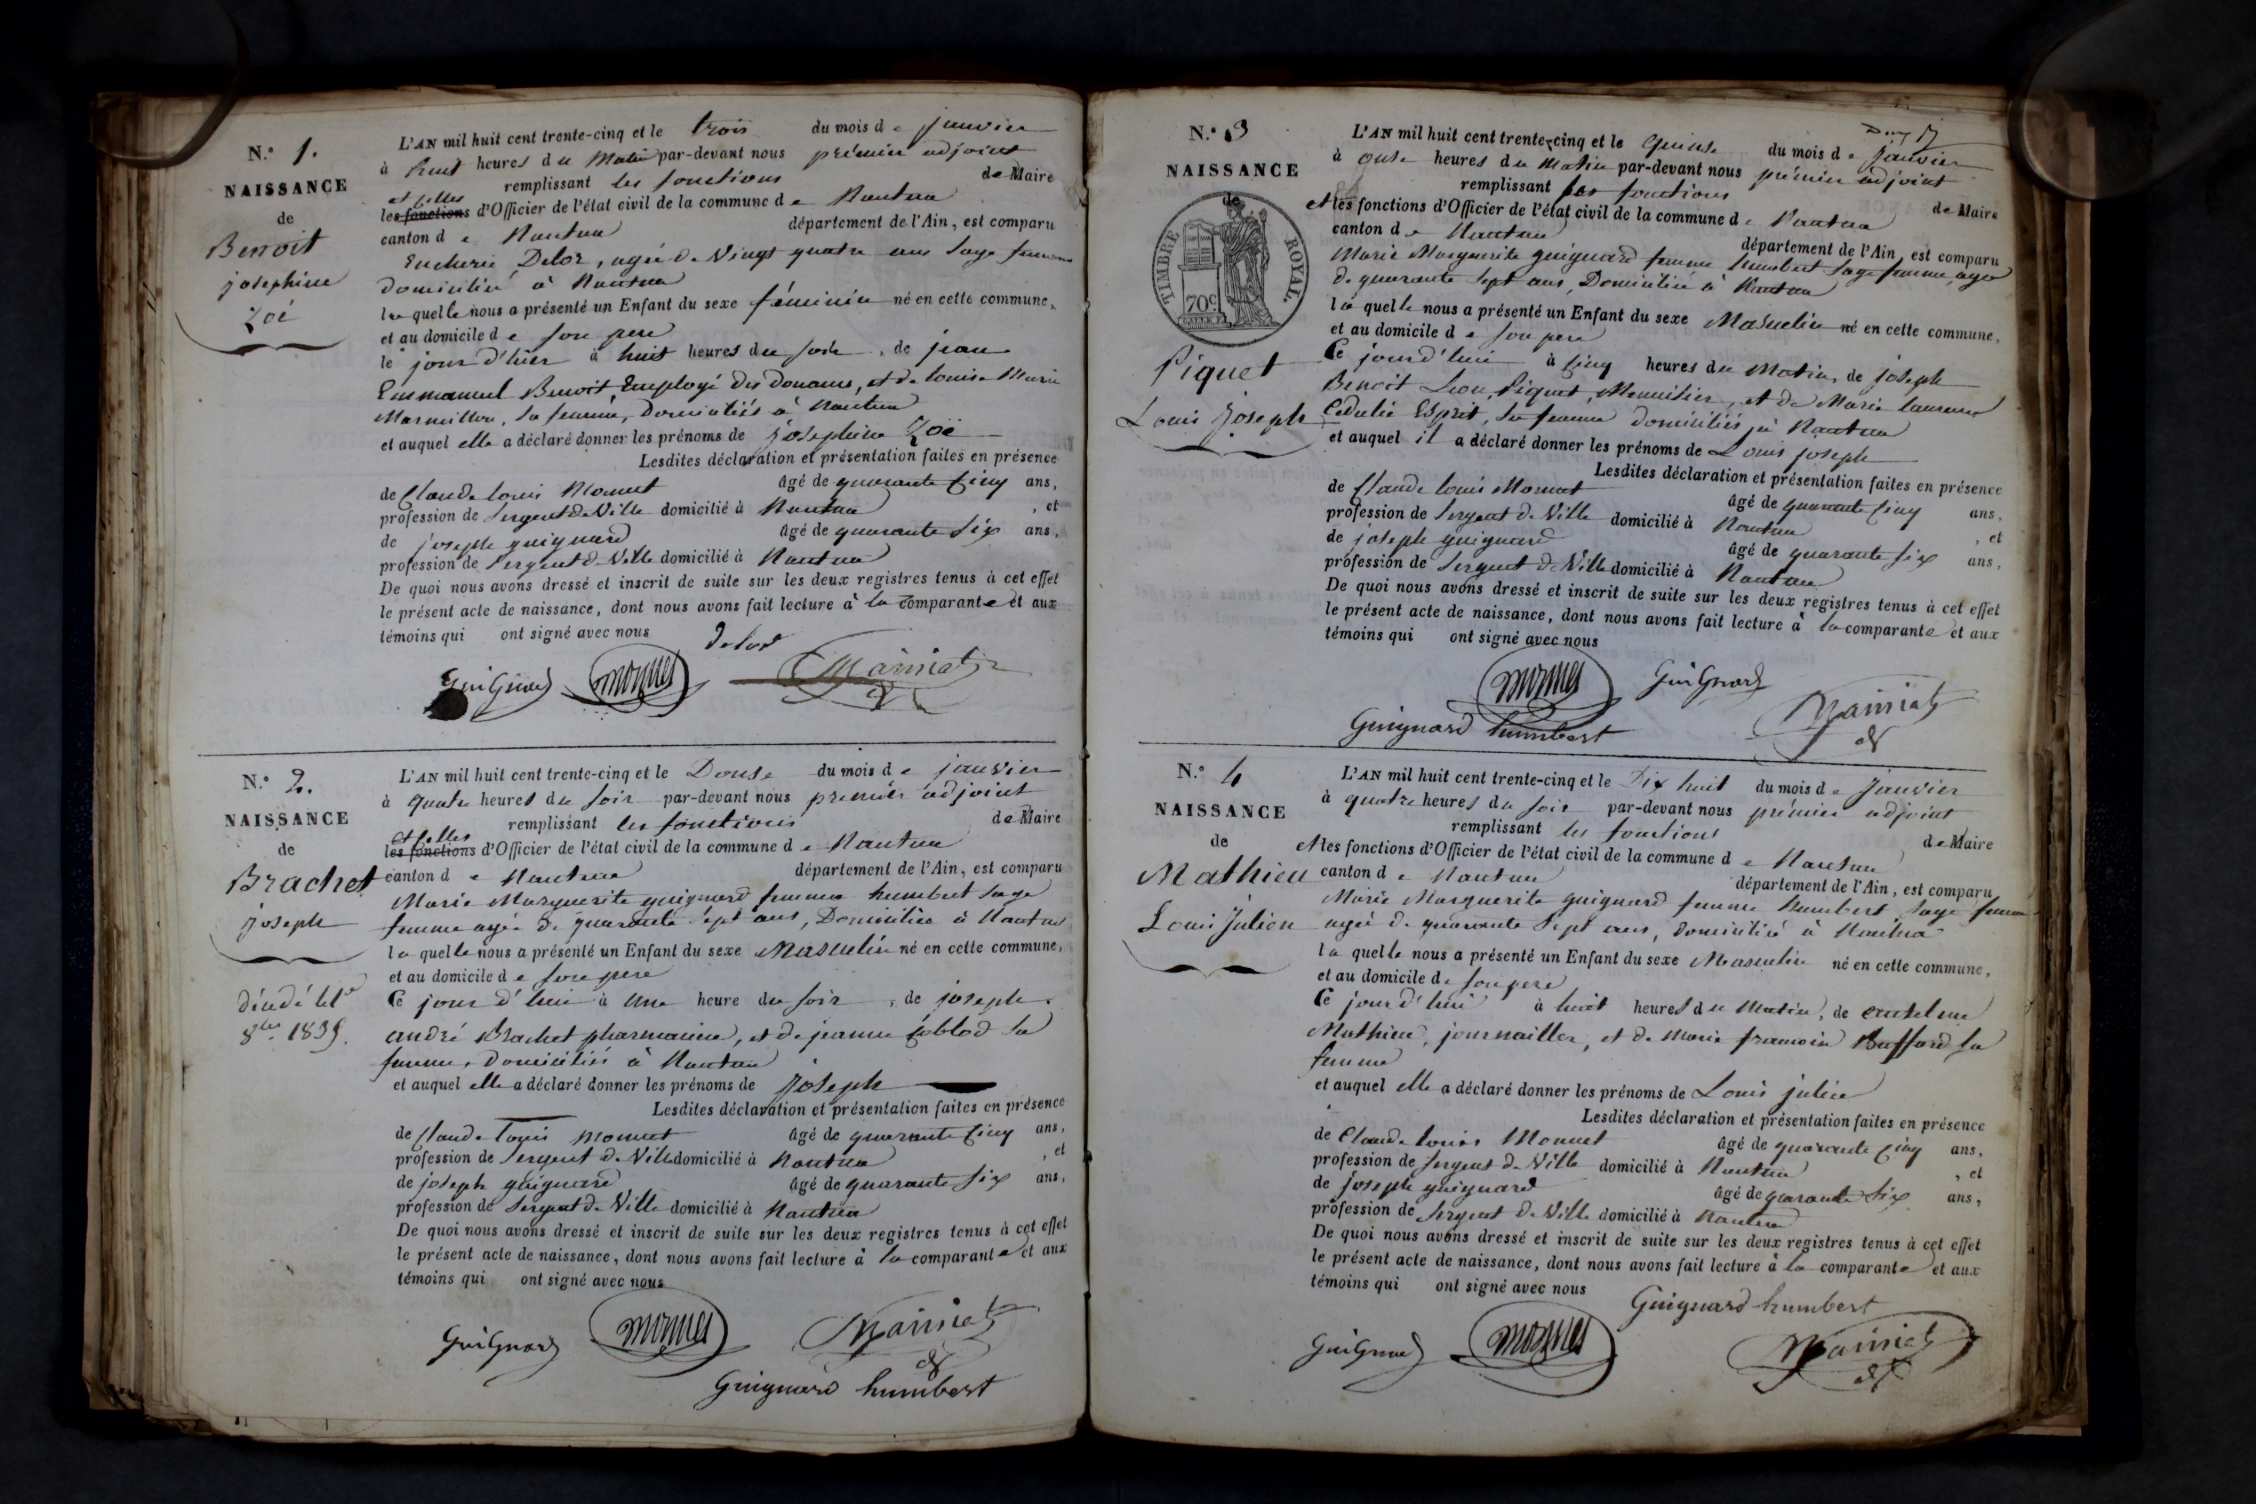 N.º 1.
NAISSANCE
de
Benoit
josephine
Zoé
L'AN mil huit cent trente-cinq et le trois du mois de janvier
à huit heures du Matin par-devant nous prémier adjoint
remplissant les fonctions de Maire
et celles
les fonctions d'Officier de l'état civil de la commune de Nantua
canton de Nantua département de l'Ain, est comparu
Eucherie Deloz, agée de Vingt quatre ans Sage femme
domiciliée à Nantua
laquelle nous a présenté un Enfant du sexe féminin né en cette commune,
et au domicile de son pere
le jour d'hier à huit heures du soir, de jean
Emmanuel Benoit Employé des Douanes, et de louise Marie
Marmillon, sa femme, domiciliés à Nantua
et auquel elle a déclaré donner les prénoms de josephine Zoé
Lesdites déclaration et présentation faites en présence
de Claude louis Monnet âgé de quarante Cinq ans,
profession de Sergent de Ville domicilié à Nantua, et
de joseph guignard âgé de quarante Six ans,
profession de Sergent de Ville domicilié à Nantua
De quoi nous avons dressé et inscrit de suite sur les deux registres tenus à cet effet
le présent acte de naissance, dont nous avons fait lecture à la comparante et aux
témoins qui ont signé avec nous
GuiGnard
N.º 2.
NAISSANCE
de
Brachet
joseph
8bre 1835.
L'AN mil huit cent trente-cinq et le Douse du mois de janvier
à quatre heures du soir par-devant nous premiér adjoint
remplissant les fonctions de Maire
et celles
les fonctions d'Officier de l'état civil de la commune de Nantua
canton de Nantua département de l'Ain, est comparu
Marie Marguerite guignard femme humbert sage
femme agée de quarante Sept ans, Domiciliée à Nantua
laquelle nous a présenté un Enfant du sexe Masculin né en cette commune,
et au domicile de son pere
Ce jour d'hui à une heure du soir, de joseph
andré Brachet pharmacien, et de jeanne sa
femme, Domiciliés à Nantua
et auquel elle a déclaré donner les prénoms de joseph
Lesdites déclaration et présentation faites en présence
de Claude Louis Monnet âgé de quarante Cinq ans,
profession de Sergent de Ville domicilié à Nantua, et
de joseph guignard âgé de quarante Six ans,
profession de Sergent de Ville domicilié à Nantua
De quoi nous avons dressé et inscrit de suite sur les deux registres tenus à cet effet
le présent acte de naissance, dont nous avons fait lecture à la comparante et aux
témoins qui ont signé avec nous
GuiGnard
Guignard humbert
N.º 3
NAISSANCE
de
TIMBRE ROYAL.
70c
Piquet
Louis joseph
L'AN mil huit cent trente-cinq et le Quinse du mois de janvier
à onse heures du Matin par-devant nous prémier adjoint
remplissant les fonctions de Maire
et les fonctions d'Officier de l'état civil de la commune de Nantua
canton de Nantua département de l'Ain, est comparu
Marie Marguerite guignard femme humbert Sage femme, agée
de quarante Sept ans, Domiciliée à Nantua
laquelle nous a présenté un Enfant du sexe Masculin né en cette commune,
et au domicile de son pere
Ce jourd'hui à Cinq heures du Matin, de joseph
Benoit Léon, Piquet, Menuisier, et de Marie laurence
Esprit, sa femme domiciliés à Nantua
et auquel il a déclaré donner les prénoms de Louis joseph
Lesdites déclaration et présentation faites en présence
de Claude louis Monnet âgé de quarante Cinq ans,
profession de Sergent de Ville domicilié à Nantua, et
de joseph guignard âgé de quarante Six ans,
profession de Sergent de Ville domicilié à Nantua
De quoi nous avons dressé et inscrit de suite sur les deux registres tenus à cet effet
le présent acte de naissance, dont nous avons fait lecture à la comparante et aux
témoins qui ont signé avec nous
GuiGnard
Guignard humbert
N.º 4
NAISSANCE
de
Mathieu
Louis Julien
L'AN mil huit cent trente-cinq et le Dix huit du mois de janvier
à quatre heures du soir par-devant nous prémier adjoint
remplissant les fonctions de Maire
et les fonctions d'Officier de l'état civil de la commune de Nantua
canton de Nantua département de l'Ain, est comparu
Marie Marguerite guignard femme humbert, Sage femme
agée de quarante Sept ans, domiciliée à Nantua
laquelle nous a présenté un Enfant du sexe Masculin né en cette commune,
et au domicile de son pere
Ce jourd'hui à huit heures du Matin, de
Mathieu, journailler, et de Marie francoise Buffard sa
femme
et auquel elle a déclaré donner les prénoms de Louis julien
Lesdites déclaration et présentation faites en présence
de Claude louis Monnet âgé de quarante Cinq ans,
profession de Sergent de Ville domicilié à Nantua, et
de joseph guignard âgé de quarante Six ans,
profession de Sergent de Ville domicilié à Nantua
De quoi nous avons dressé et inscrit de suite sur les deux registres tenus à cet effet
le présent acte de naissance, dont nous avons fait lecture à la comparante et aux
témoins qui ont signé avec nous
Guignard humbert
GuiGnard